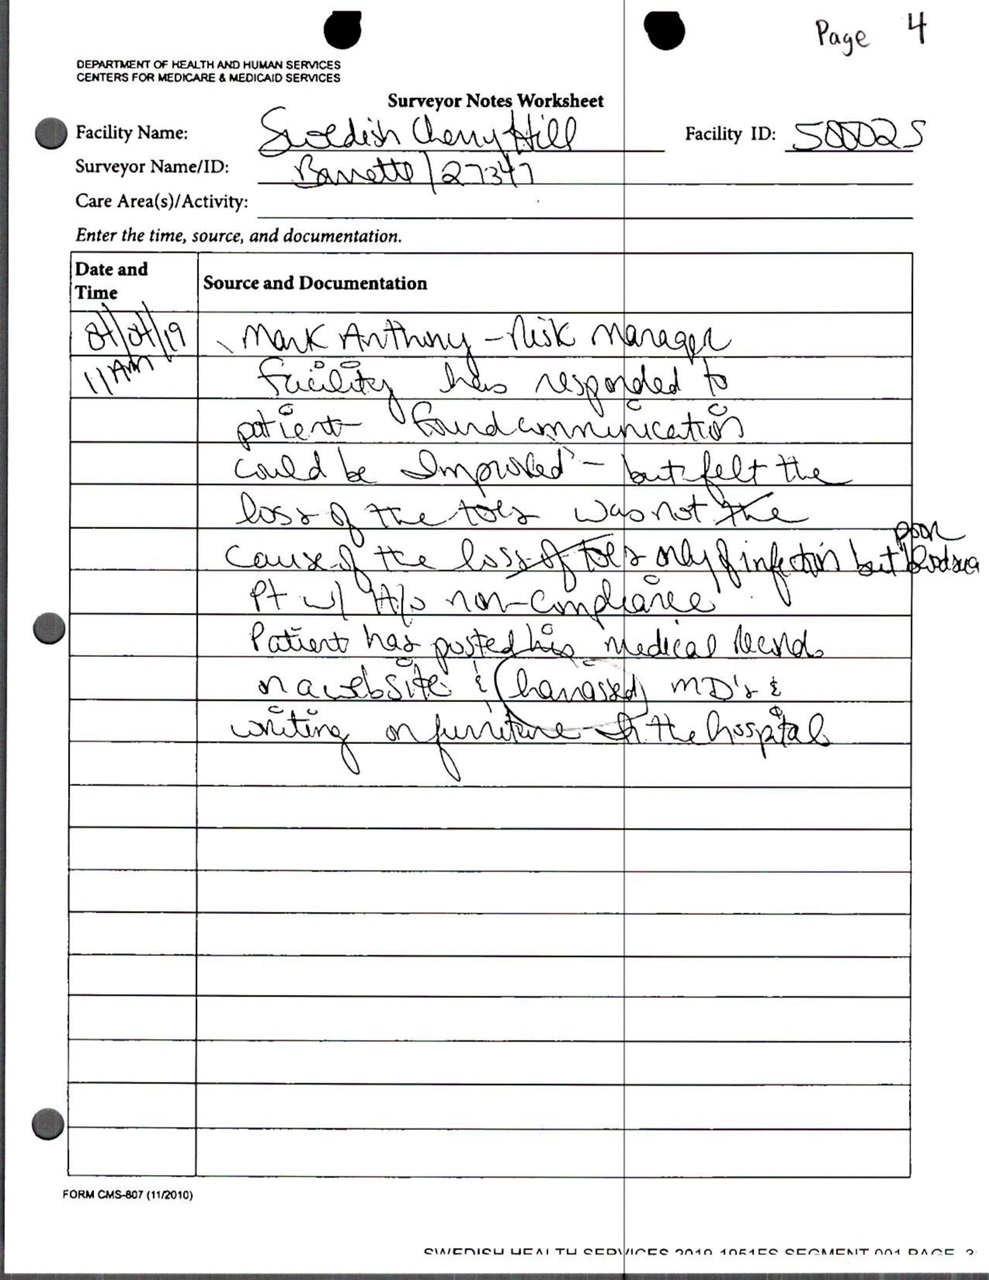 Page 4
DEPARTMENT OF HEALTH AND HUMAN SERVICES
CENTERS FOR MEDICARE & MEDICAID SERVICES
Surveyor Notes Worksheet
Facility Name: Swedish Cherry Hill Facility ID: 500025
Surveyor Name/ID: Barrette/27347
Care Area(s)/Activity:
Enter the time, source, and documentation.
Date and Time Source and Documentation
04/04/19 Mark Anthony - Risk Manager
11 AM Facility has responded to
patient found communication
could be Improved - but felt the
loss of the toes was not the
cause of the loss of toes only of infection but poor
Pt w/ H/o non-compliance
Patient has posted his medical records
on a website & (harrassed) MD's &
writing on furniture in the hospital
FORM CMS-807 (11/2010)
SWEDISH HEALTH SERVICES 2019-1051ES SEGMENT 001 PAGE 3